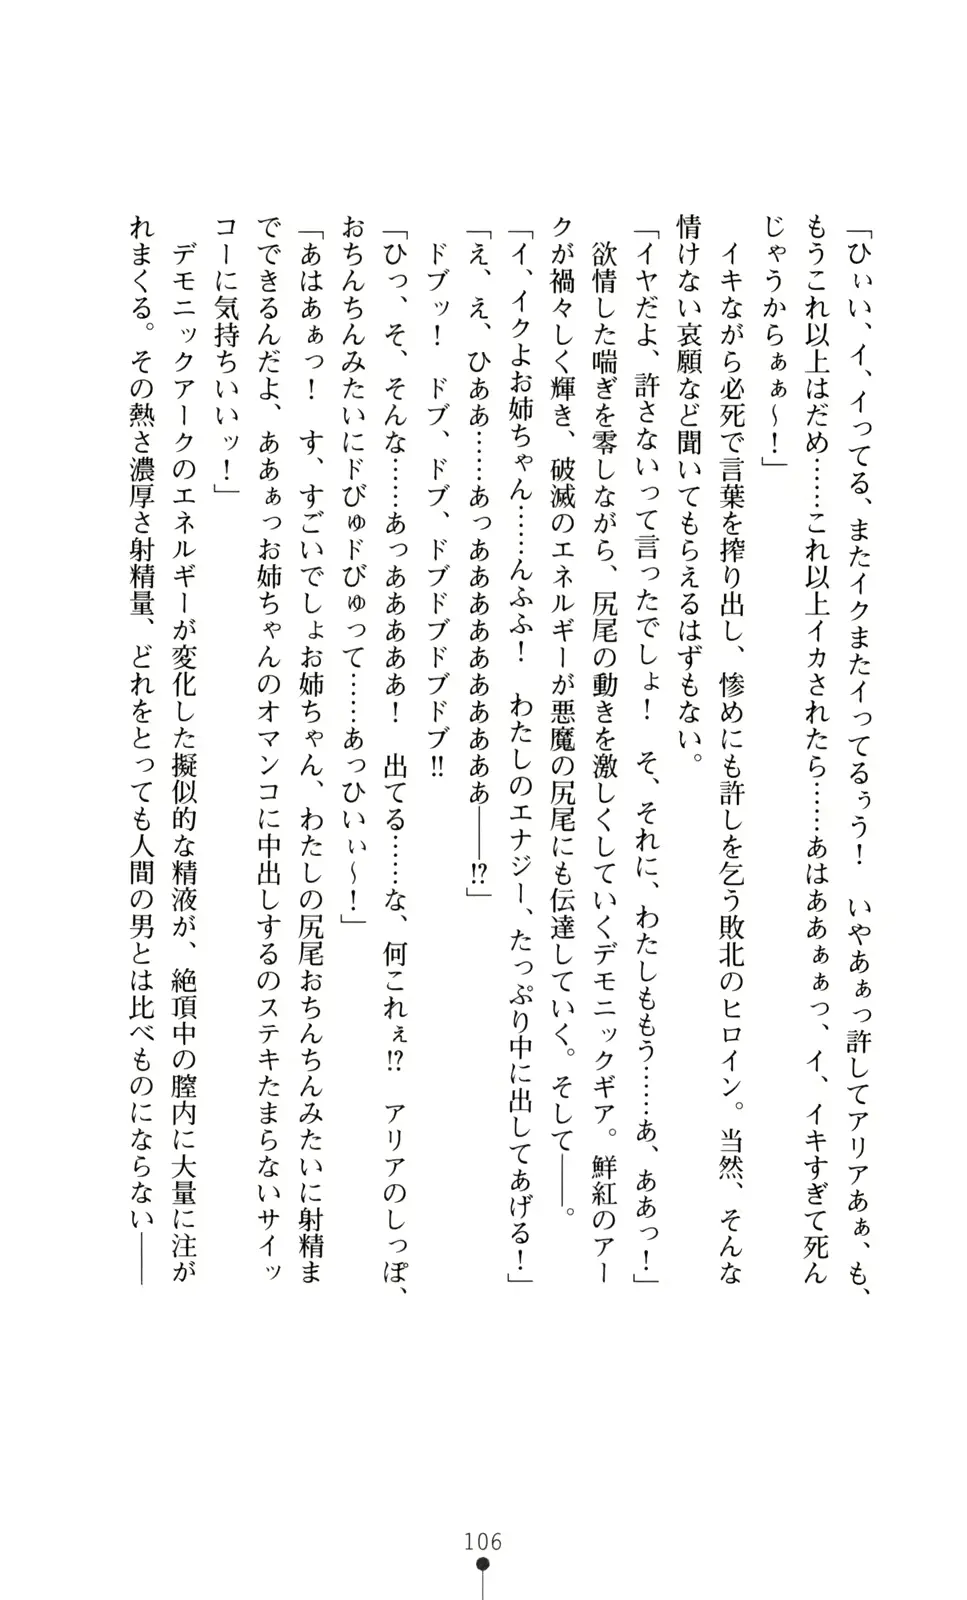 「ひぃい、イ、イってる、またイクまたイってるぅう！　いやあぁっ許してアリアあぁ、も、
もうこれ以上はだめ……これ以上イカされたら……あはああぁぁっ、イ、イキすぎて死ん
じゃうからぁぁ～！」
　イキながら必死で言葉を搾り出し、惨めにも許しを乞う敗北のヒロイン。当然、そんな
情けない哀願など聞いてもらえるはずもない。
「イヤだよ、許さないって言ったでしょ！　そ、それに、わたしももう……あ、ああっ！」
　欲情した喘ぎを零しながら、尻尾の動きを激しくしていくデモニックギア。鮮紅のアー
クが禍々しく輝き、破滅のエネルギーが悪魔の尻尾にも伝達していく。そして――。
「イ、イクよお姉ちゃん……んふふ！　わたしのエナジー、たっぷり中に出してあげる！」
「え、え、ひああ……あっああああああああああ――!?」
　ドブッ！　ドブ、ドブ、ドブドブドブ!!
「ひっ、そ、そんな……あっああああ！　出てる……な、何これぇ!?　アリアのしっぽ、
おちんちんみたいにドびゅドびゅって……あっひいぃ～！」
「あはあぁっ！　す、すごいでしょお姉ちゃん、わたしの尻尾おちんちんみたいに射精ま
でできるんだよ、ああぁっお姉ちゃんのオマンコに中出しするのステキたまらないサイッ
コーに気持ちいいッ！」
　デモニックアークのエネルギーが変化した擬似的な精液が、絶頂中の膣内に大量に注が
れまくる。その熱さ濃厚さ射精量、どれをとっても人間の男とは比べものにならない――
106